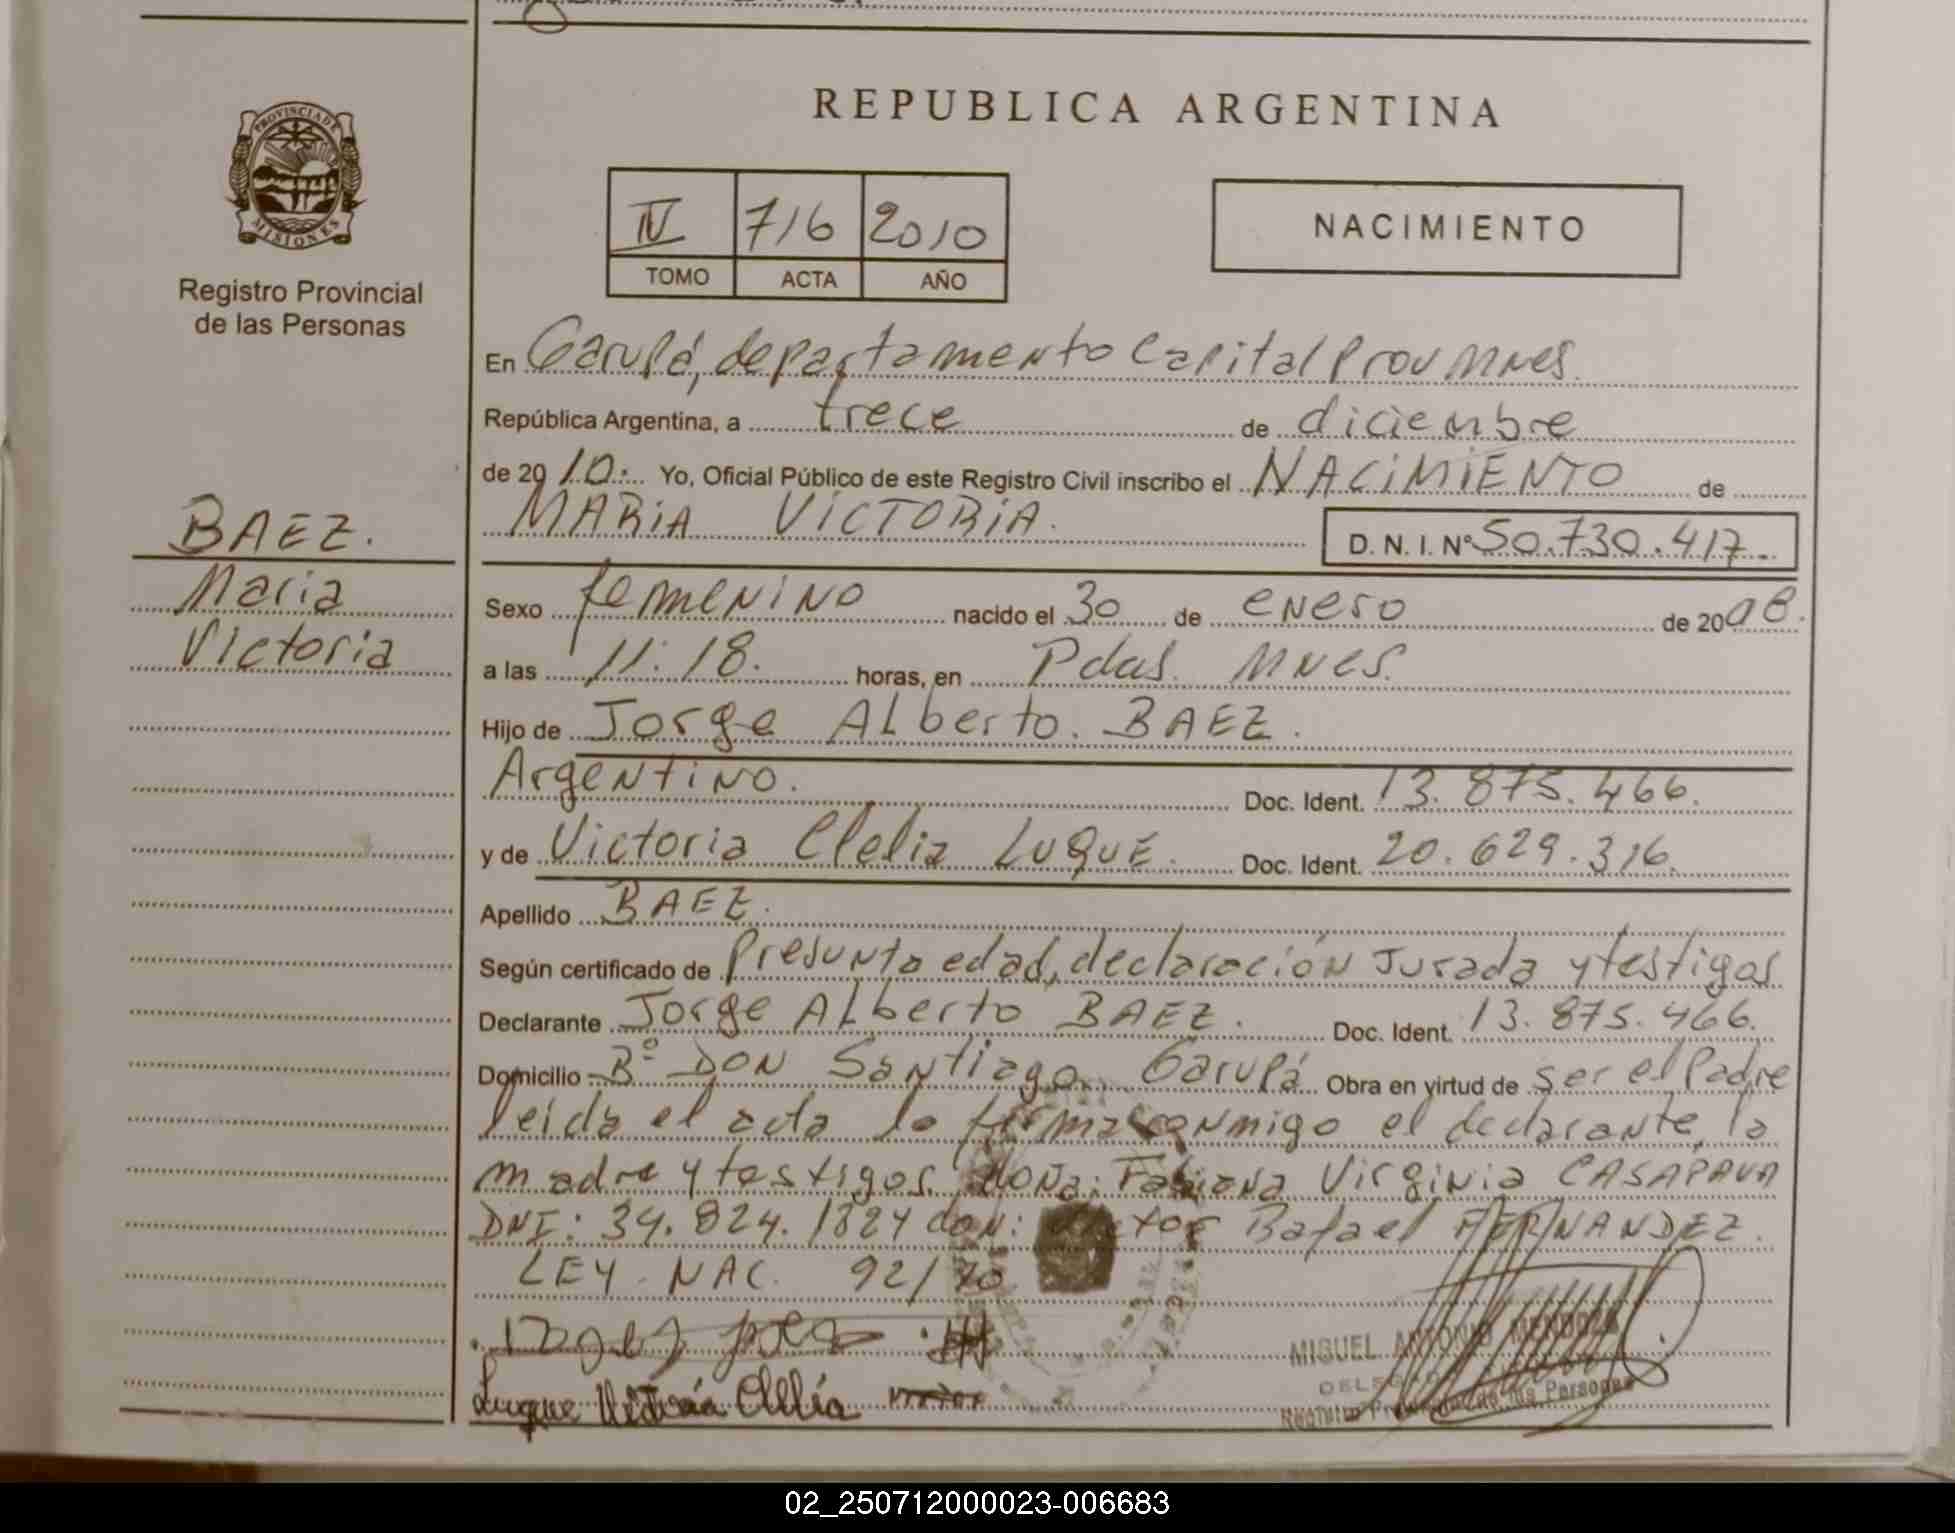 REPUBLICA ARGENTINA
PROVINCIA DE
MISIONES
Registro Provincial
de las Personas
IV 716 2010
TOMO ACTA AÑO
NACIMIENTO
En Garupá, departamento Capital Prov Mnes.
República Argentina, a trece de diciembre
de 2010. Yo, Oficial Público de este Registro Civil inscribo el NACIMIENTO de
MARIA VICTORIA.
D. N. I. Nº 50.730.417.
BAEZ.
Maria
Victoria
Sexo femenino nacido el 30 de enero de 2008.
a las 11:18. horas, en Pdas. Mnes.
Hijo de Jorge Alberto. BAEZ.
Argentino. Doc. Ident. 13.875.466.
y de Victoria Clelia LUQUE. Doc. Ident. 20.629.316.
Apellido BAEZ.
Según certificado de Presunta edad, declaración Jurada y testigos
Declarante Jorge Alberto BAEZ. Doc. Ident. 13.875.466.
Domicilio Bº DON Santiago. Garupá Obra en virtud de ser el Padre
leida el acta la firma conmigo el declarante, la
madre y testigos doña: Fabiana Virginia CASAPAVA
DNI: 34.824.182 y don: Rafael FERNANDEZ.
LEY NAC. 92/70
Luque Victoria Clelia
MIGUEL ANTONIO MENDOZA
02_250712000023-006683